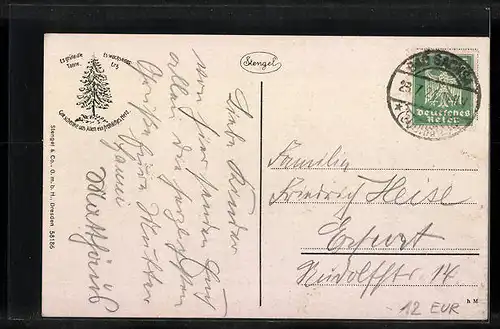 Es grüne die Tanne,
Es wachse das Erz
Gott schenke uns Allen ein fröhliches Herz.
Stengel
BAD SACHSA
Deutsches
Reich
Stengel & Co., G. m. b. H., Dresden 58186
Liebe Kinder
von hier senden Euch
allen die herzlichsten
Grüße Eure Mutter
Familie
Friedrich Heise
Erfurt
Rudolfstr. 14
12 EUR